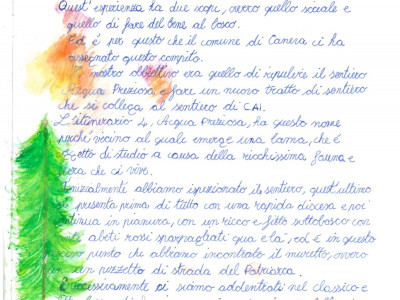 Quest' esperienza ha due scopi, ovvero quello sociale e
quello di fare del bene al bosco.
Ed è per questo che il comune di Caneva ci ha
assegnato questo compito.
nostro obbiettivo era quello di ripulire il sentiero
Acqua Preziosa e fare un nuovo tratto di sentiero
che si collega al sentiero di CAI.
L'itinerario 4, Acqua Preziosa, ha questo nome
perché vicino al quale emerge una lama, che è
oggetto di studio a causa della ricchissima fauna e
flora che ci vive.
Inizialmente abbiamo ispezionato il sentiero, quest'ultimo
si presenta prima di tutto con una rapida discesa e poi
continua in pianura, con un ricco e fitto sottobosco con
abeti rossi sparpagliati qua e là, ed è in questo
punto che abbiamo incontrato il muretto, ovvero
un pezzetto di strada del Patriarca.
Successivamente ci siamo addentrati nel classico e